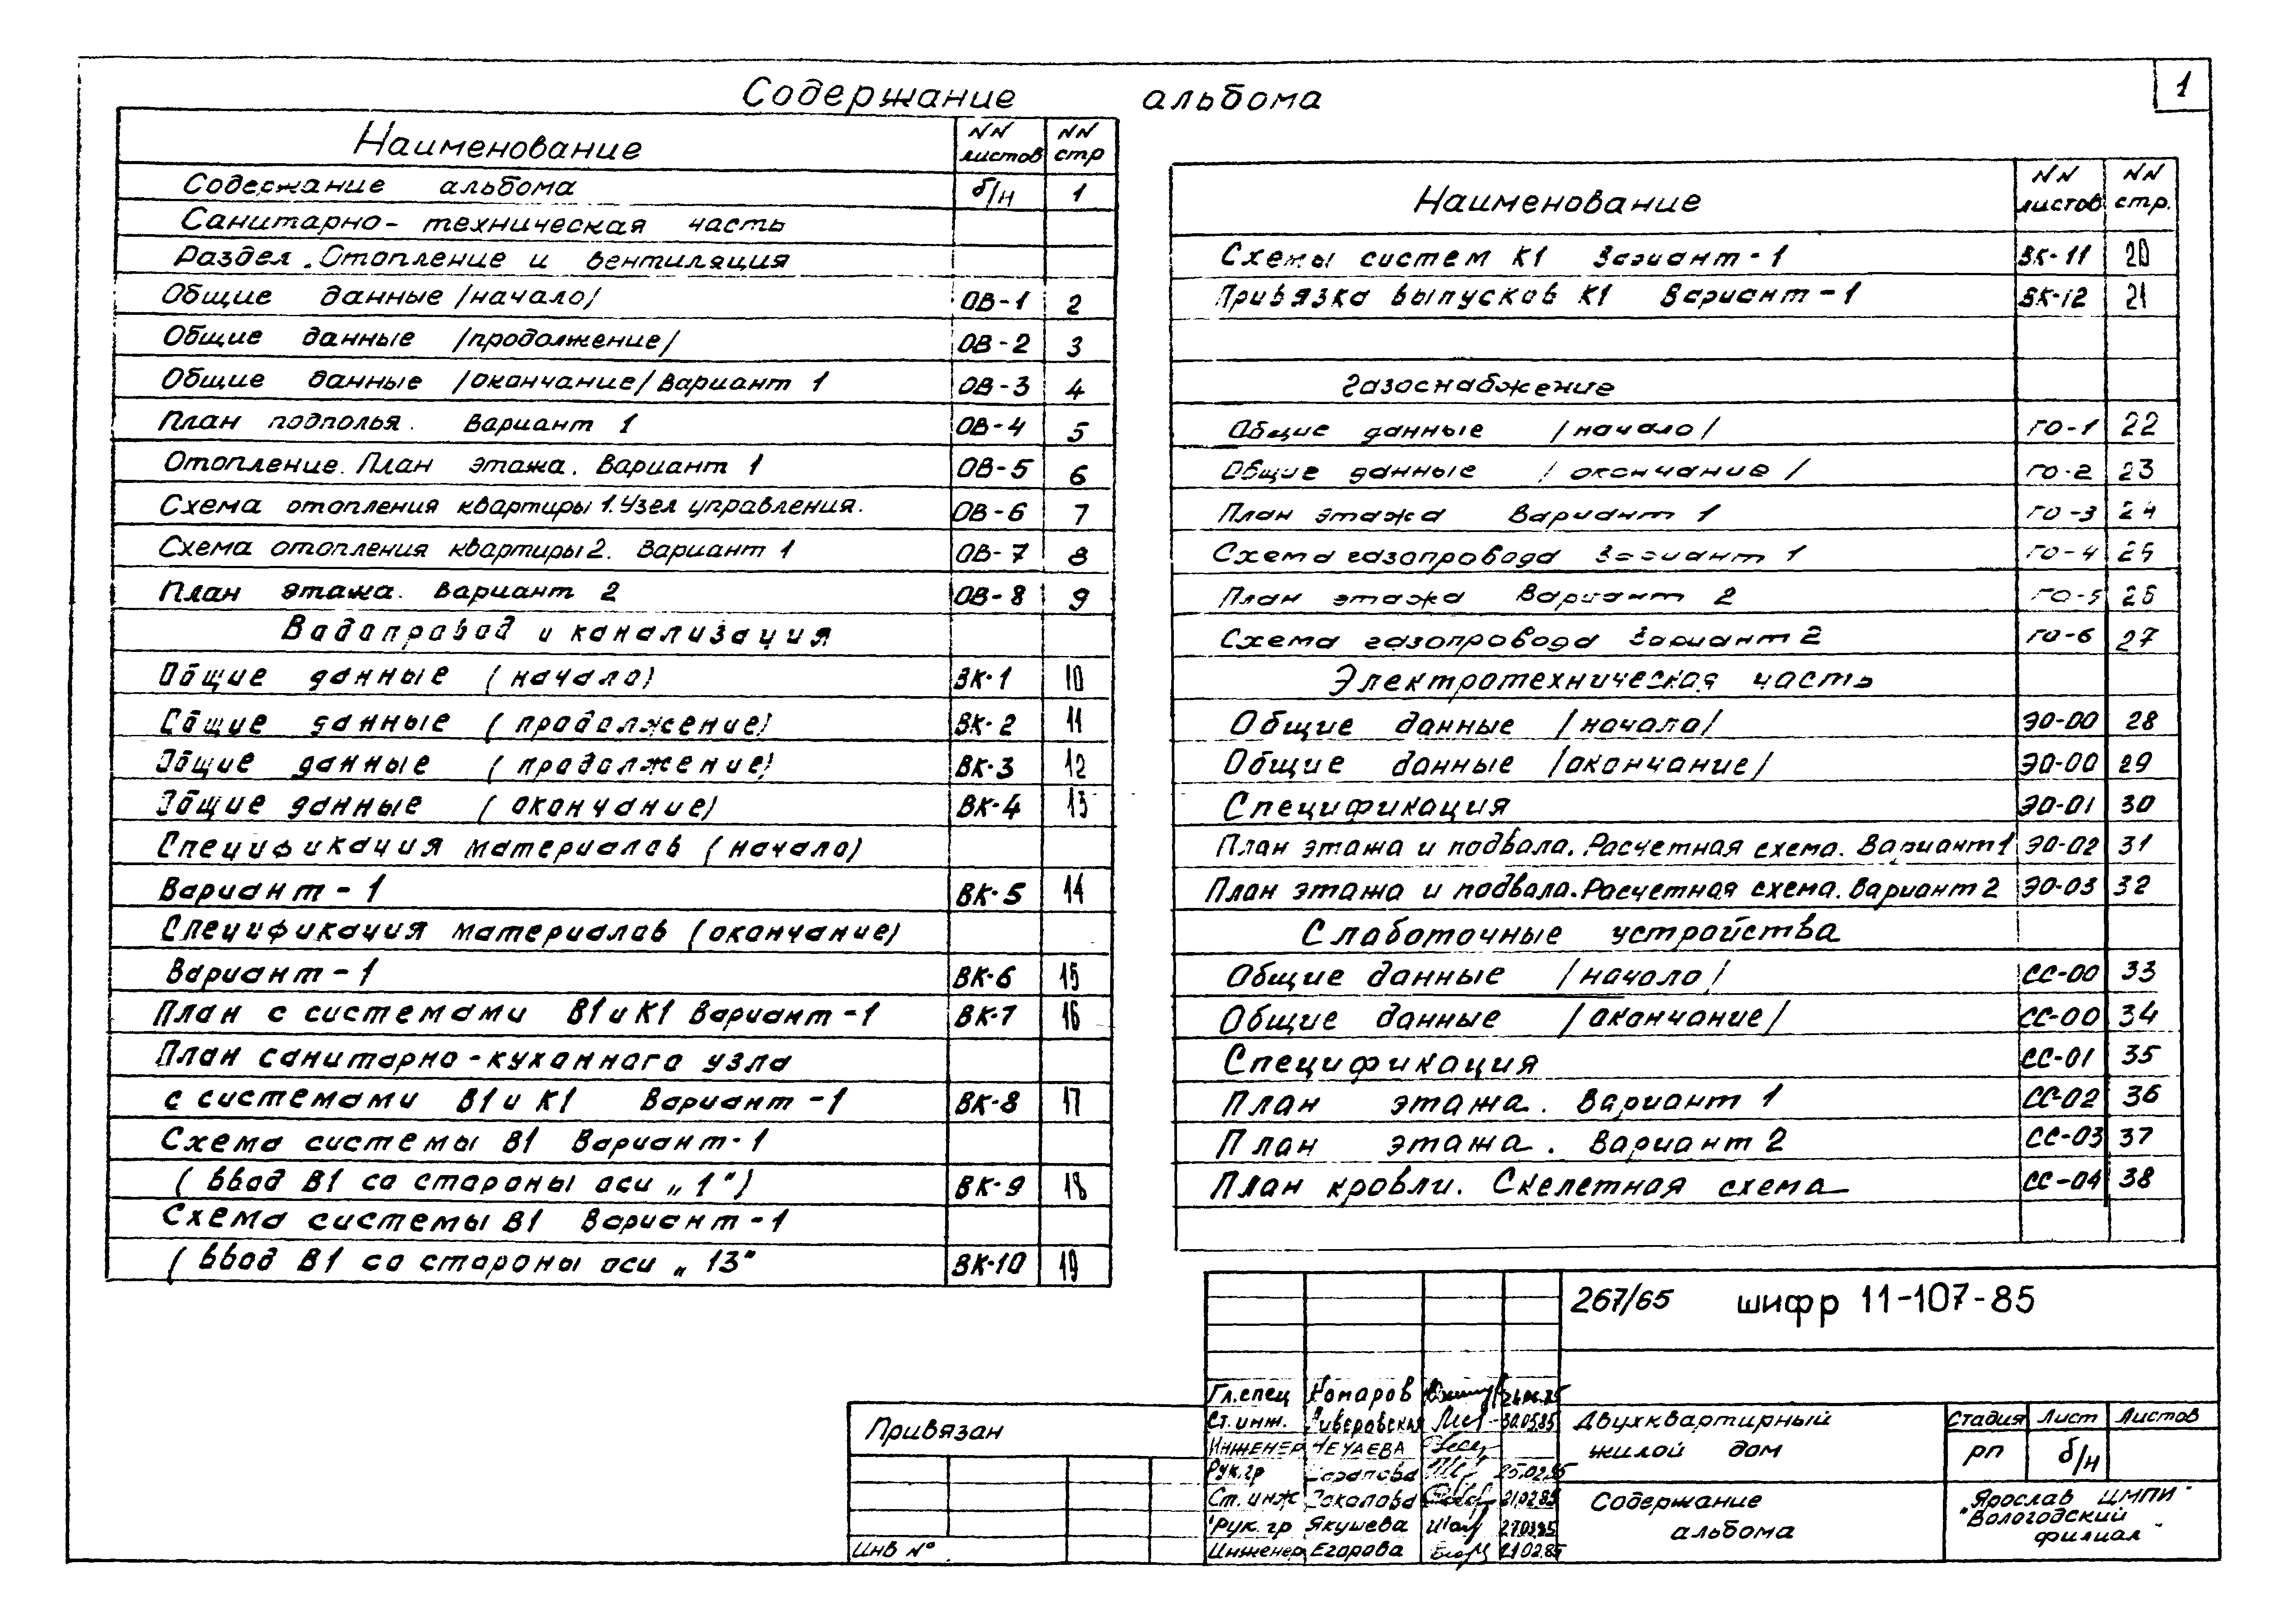 1
Содержание альбома
Наименование NN листов NN стр
Содержание альбома б/н 1
Санитарно-техническая часть
Раздел. Отопление и вентиляция
Общие данные /начало/ ОВ-1 2
Общие данные /продолжение/ ОВ-2 3
Общие данные /окончание/ Вариант 1 ОВ-3 4
План подполья. Вариант 1 ОВ-4 5
Отопление. План этажа. Вариант 1 ОВ-5 6
Схема отопления квартиры 1. Узел управления. ОВ-6 7
Схема отопления квартиры 2. Вариант 1 ОВ-7 8
План этажа. Вариант 2 ОВ-8 9
Водопровод и канализация
Общие данные (начало) ВК-1 10
Общие данные (продолжение) ВК-2 11
Общие данные (продолжение) ВК-3 12
Общие данные (окончание) ВК-4 13
Спецификация материалов (начало)
Вариант-1 ВК-5 14
Спецификация материалов (окончание)
Вариант-1 ВК-6 15
План с системами В1 и К1 Вариант-1 ВК-7 16
План санитарно-кухонного узла
с системами В1 и К1 Вариант-1 ВК-8 17
Схема системы В1 Вариант-1
(Ввод В1 со стороны оси „1") ВК-9 18
Схема системы В1 Вариант-1
(Ввод В1 со стороны оси „13" ВК-10 19
Наименование NN листов NN стр.
Схемы систем К1 Вариант-1 ВК-11 20
Привязка выпусков К1 Вариант-1 ВК-12 21
Газоснабжение
Общие данные /начало/ ГО-1 22
Общие данные /окончание/ ГО-2 23
План этажа Вариант 1 ГО-3 24
Схема газопровода Вариант 1 ГО-4 25
План этажа Вариант 2 ГО-5 26
Схема газопровода Вариант 2 ГО-6 27
Электротехническая часть
Общие данные /начало/ ЭО-00 28
Общие данные /окончание/ ЭО-00 29
Спецификация ЭО-01 30
План этажа и подвала. Расчетная схема. Вариант 1 ЭО-02 31
План этажа и подвала. Расчетная схема. Вариант 2 ЭО-03 32
Слаботочные устройства
Общие данные /начало/ СС-00 33
Общие данные /окончание/ СС-00 34
Спецификация СС-01 35
План этажа. Вариант 1 СС-02 36
План этажа. Вариант 2 СС-03 37
План кровли. Скелетная схема СС-04 38
267/65 шифр 11-107-85
Гл.спец
Ст.инж. 30.05.85
Инженер Нечаева
Рук.гр 25.02.85
Ст.инж 21.02.85
Рук.гр Якушева 27.03.85
Инженер Егорова 21.02.85
Привязан
Инв N°
Двухквартирный
жилой дом
Стадия Лист Листов
РП б/н
Содержание
альбома
"Ярослав ЦМПИ"
"Вологодский
филиал"